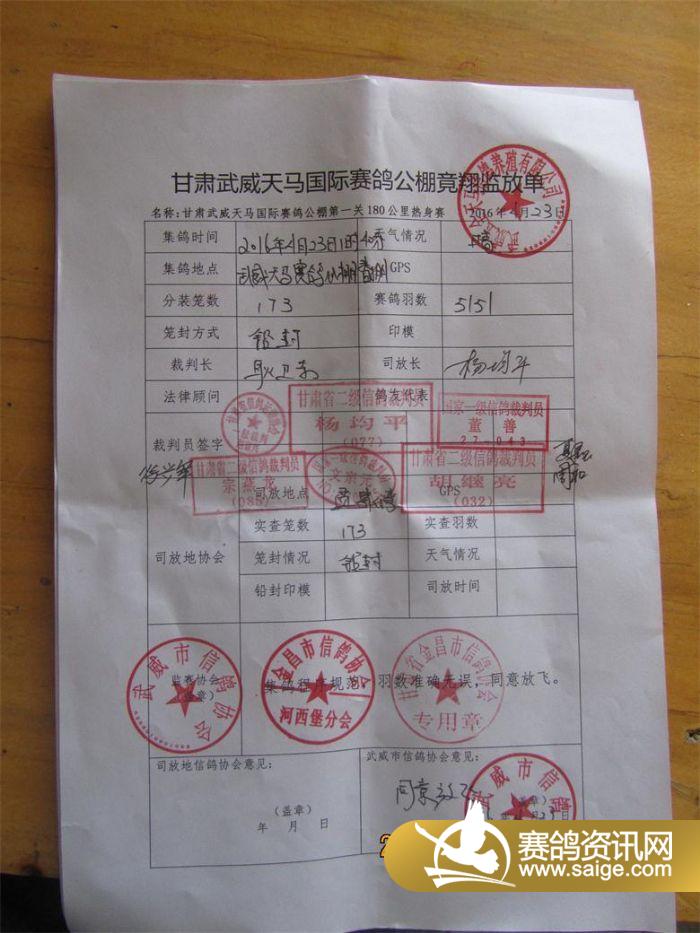 甘肃武威天马国际赛鸽公棚竟翔监放单
名称:甘肃武威天马国际赛鸽公棚第一关180公里热身赛 2016年4月23日
集鸽时间 2016年4月23日 天气情况
集鸽地点 GPS
分装笼数 173 赛鸽羽数 5151
笼封方式 铅封 印模
裁判长 司放长 杨均平
法律顾问 鸽友代表
甘肃省二级信鸽裁判员
杨均平
(077)
国家一级信鸽裁判员
董善
27-043
裁判员签字
甘肃省二级信鸽裁判员
宗燕龙
(085)
甘肃省二级信鸽裁判员
胡继亮
(032)
司放地点 GPS
实查笼数 173 实查羽数
司放地协会 笼封情况 铅封 天气情况
铅封印模 司放时间
武威市信鸽协会
监赛协会
(盖章)
金昌市信鸽协会
河西堡分会
甘肃省金昌市信鸽协会
专用章
集鸽程序规范,羽数准确无误,同意放飞。
司放地信鸽协会意见:
(盖章)
年 月 日
武威市信鸽协会意见:
武威市信鸽
(盖章)
23日
赛鸽资讯网
www.saige.com